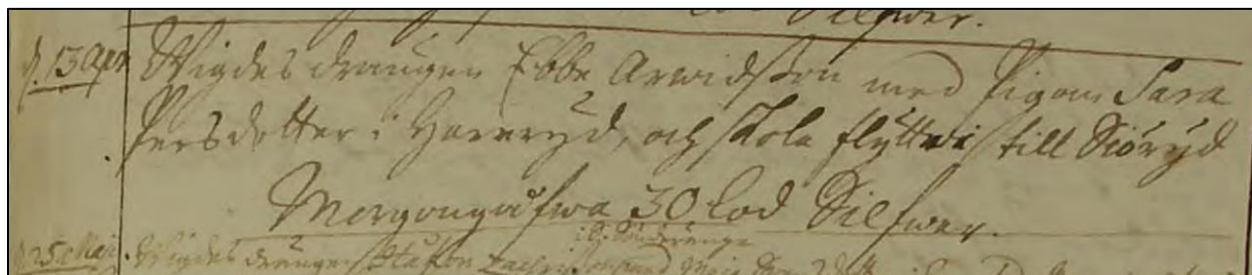 Silfwer.
d. 13 Apr. Wigdes drängen Ebbe Arwidsson med Pigan Sara
Persdotter i Hareryd, och skola flyttia till Siöryd
Morgongåfwa 30 lod Silfwer.
d. 25 Maji. Wigdes drängen Staffan